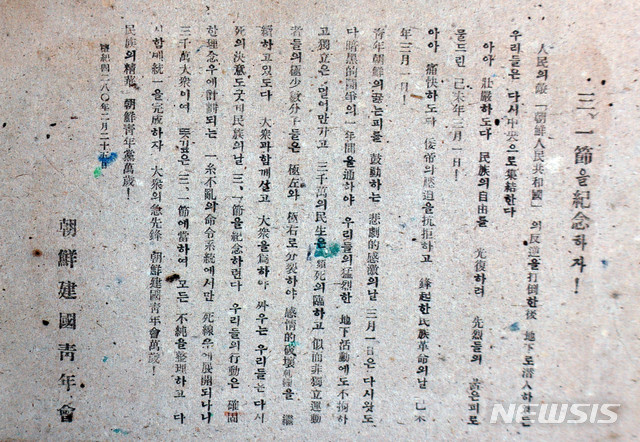 三、一節을紀念하자!
人民의敵「朝鮮人民共和國」의反逆을打倒한後 地下로潛入하였든
우리들은 다시中央으로集結한다
아아 壯嚴하도다 民族의自由를 光復하려 先烈들의 붉은피로
물드린 己未年三月一日!
아아 痛快하도다 倭帝의壓迫을抗拒하고 蜂起한民族革命의날 己未
年三月一日!
青年朝鮮의끓는피를 鼓動하는 悲劇的感激의날 三月一日은 다시왓도
다 暗黑的鬪爭의一年間을通하야 우리들의猛烈한 地下活動에도不拘하
고獨立은 멀어만가고 三千萬의民生은 死에臨하고 似而非獨立運動
者들의極少數分子들은 極左와 極右로分裂하야 感情的破壞 을 繼
續하고있도다 大衆과함께살고 大衆을爲하야 싸우는 우리들는다시
死의決意도굿게民族의날三、一節을紀念하련다 우리들의行動은 確固
한理念우에計劃되는 一糸不亂의命令系統에서만 死線우에展開되나니
三千萬大衆이여 뜻깊은三、一節에當하여 모든 不純을整理하고 다
시함께統一을完成하자 大衆의急先鋒 朝鮮建國青年會萬歲!
民族의精華 朝鮮青年黨萬歲!
檀紀四二八〇年二月二十五日
朝鮮建國青年會
NEWSIS